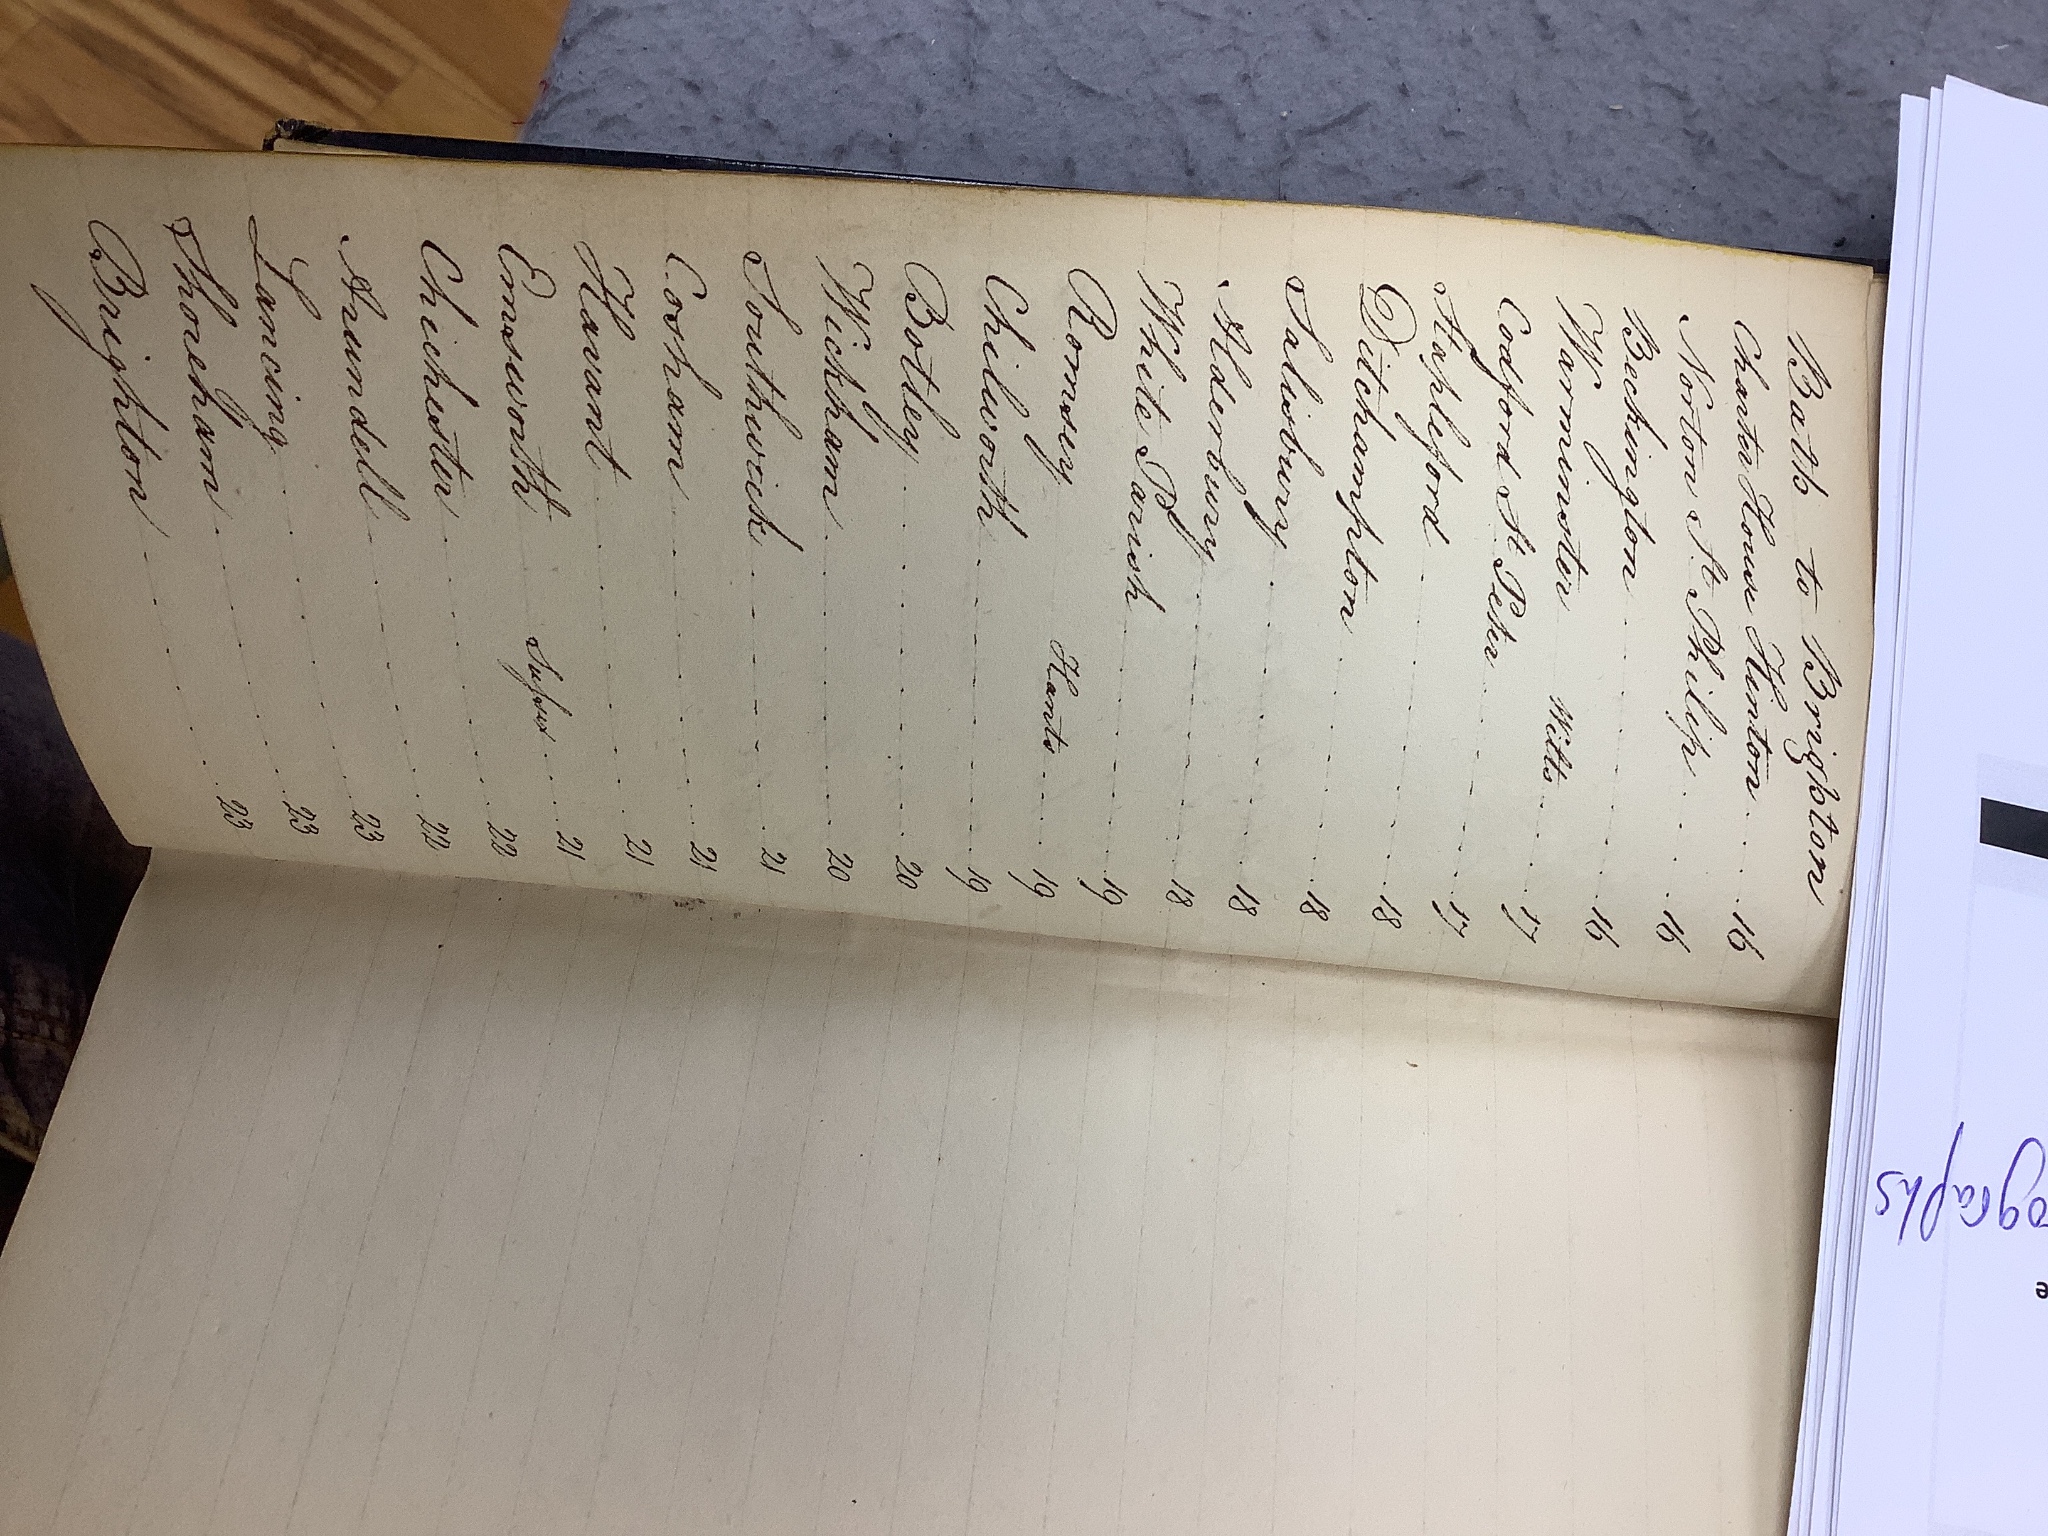 Bath to Brighton
Charter House Hinton . . . . 16
Norton St Philip . . . . 16
Beckington . . . . 16
Warminster Wilts . . . . 17
Codford St Peter . . . . 17
Stapleford . . . . 18
Ditchampton . . . . 18
Salisbury . . . . 18
Alderbury . . . . 18
White Parish . . . . 19
Romsey Hants . . . . 19
Chilworth . . . . 19
Botley . . . . 20
Wickham . . . . 20
Southwick . . . . 21
Cosham . . . . 21
Havant . . . . 21
Emsworth Sussex . . . . 21
Chichester . . . . 22
Arundell . . . . 22
Lancing . . . . 23
Shoreham . . . . 23
Brighton . . . . 23
ographs
e